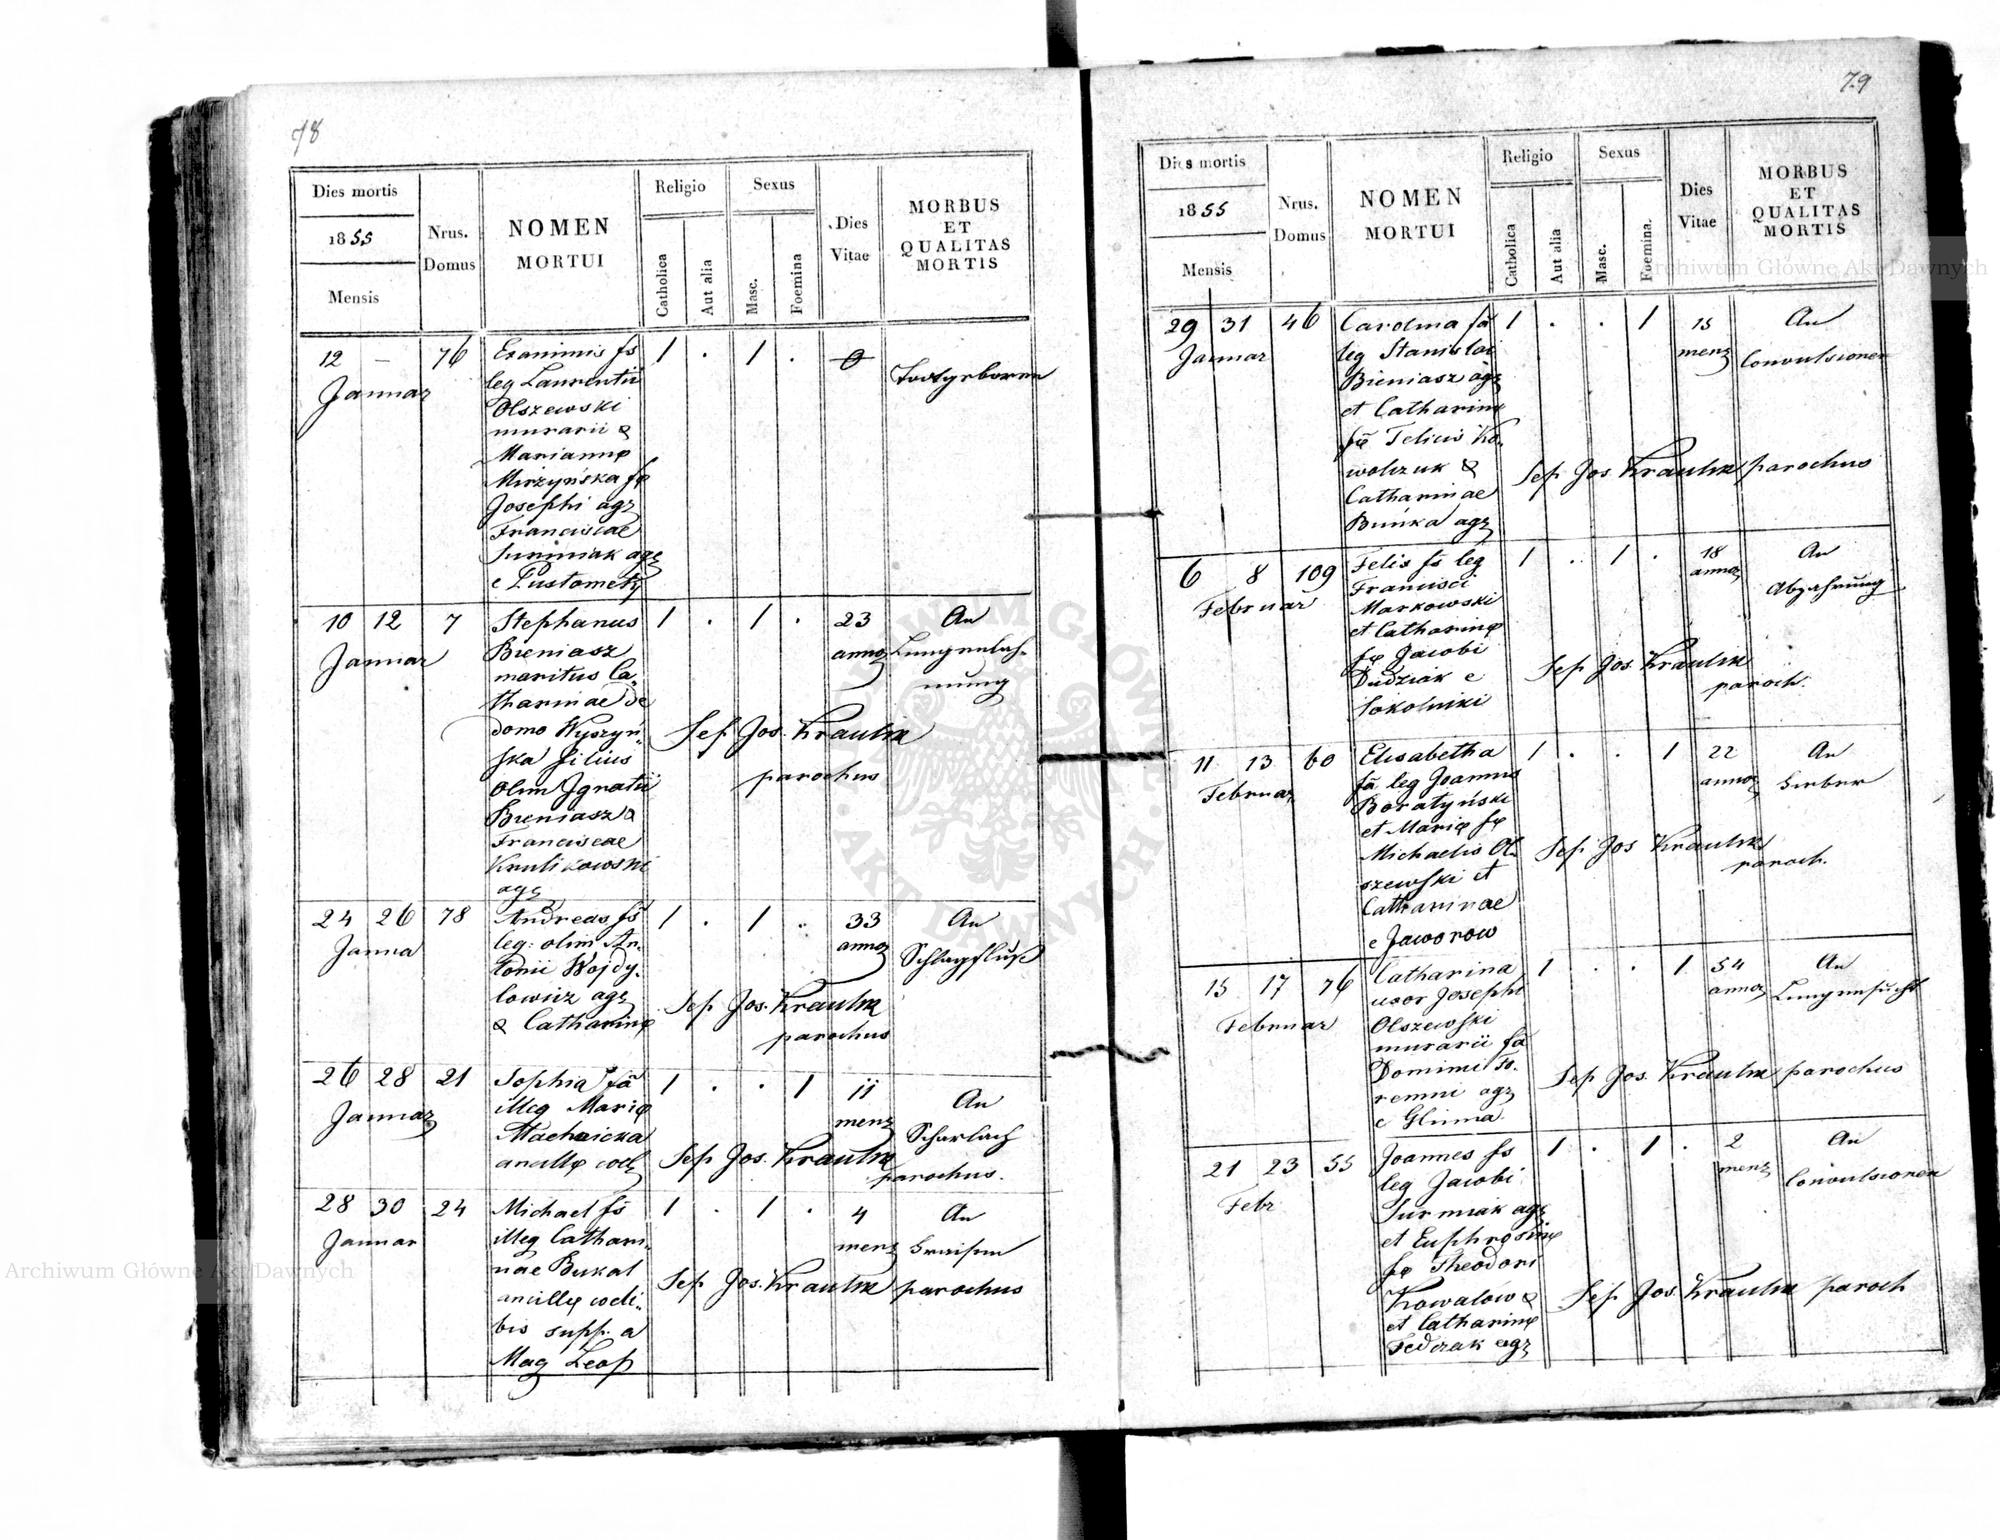 78
Dies mortis
1855
Mensis
Nrus.
Domus
NOMEN
MORTUI
Religio
Catholica
Aut alia
Sexus
Masc.
Foemina
Dies
Vitae
MORBUS
ET
QUALITAS
MORTIS
12 — 76
Januar
Exanimis fs
leg Laurentii
Olszewski
murarii &
Mariannę
Mirzyńska fę
Josephi agr
Franciscae
Surmiak agr
e Pustomety
1 . 1 . 0
Todtgeboren
10 12 7
Januar
Stephanus
Bieniasz
maritus Ca-
tharinae de
domo Wyszyń-
ska filius
olim Ignatii
Bieniasz &
Franciscae
Krulikowski
agr
1 . 1 . 23
annor
An
Lungenläh-
mung
Sep Jos. Kraulik
parochus
24 26 78
Janua
Andreas fs
leg: olim An-
tonii Wojdy-
lowicz agr
& Catharinę
1 . 1 . 33
annor
An
Schlagfluß
Sep Jos. Kraulik
parochus
26 28 21
Januar
Sophia fa
illeg Marię
Machnicka
ancillę coel
1 . . 1 11
menz
An
Scharlach
Sep Jos. Kraulik
parochus.
28 30 24
Januar
Michael fs
illeg Cathari-
nae Bukal
ancillę coeli-
bis supp. a
Mag Leop
1 . 1 . 4
menz
An
Fraisen
Sep Jos. Kraulik parochus
79
Dies mortis
1855
Mensis
Nrus.
Domus
NOMEN
MORTUI
Religio
Catholica
Aut alia
Sexus
Masc.
Foemina.
Dies
Vitae
MORBUS
ET
QUALITAS
MORTIS
29 31 46
Januar
Carolina fa
leg Stanislai
Bieniasz agr
et Catharinę
fę Felicis Ko-
walczuk &
Catharinae
Buńka agr
1 . . 1 15
menz
An
Convulsionen
Sep Jos Kraulik parochus
6 8 109
Februar
Felix fs leg
Francisci
Markowski
et Catharinę
fę Jacobi
Dudziak e
Sokolniki
1 . 1 . 18
annor
An
Abzehrung
Sep Jos. Kraulik
paroch.
11 13 60
Februar
Elisabetha
fa leg Joannis
Boratyński
et Marię fę
Michaelis Ol-
szewski et
Catharinae
e Jaworow
1 . . 1 22
annor
An
Fieber
Sep Jos Kraulik
paroch.
15 17 76
Februar
Catharina
uxor Josephi
Olszewski
murarii fa
Dominici Fo-
remni agr
e Glinna
1 . . 1 54
annor
An
Lungensucht
Sep Jos. Kraulik parochus
21 23 55
Febr
Joannes fs
leg Jacobi
Surmiak agr
et Euphrosinę
fę Theodori
Kowalow &
et Catharinę
Fedczak agr
1 . 1 . 2
menz
An
Convulsionen
Sep Jos Kraulik paroch
Archiwum Główne Akt Dawnych
Archiwum Główne Akt Dawnych
ARCHIWUM GŁÓWNE
AKT DAWNYCH